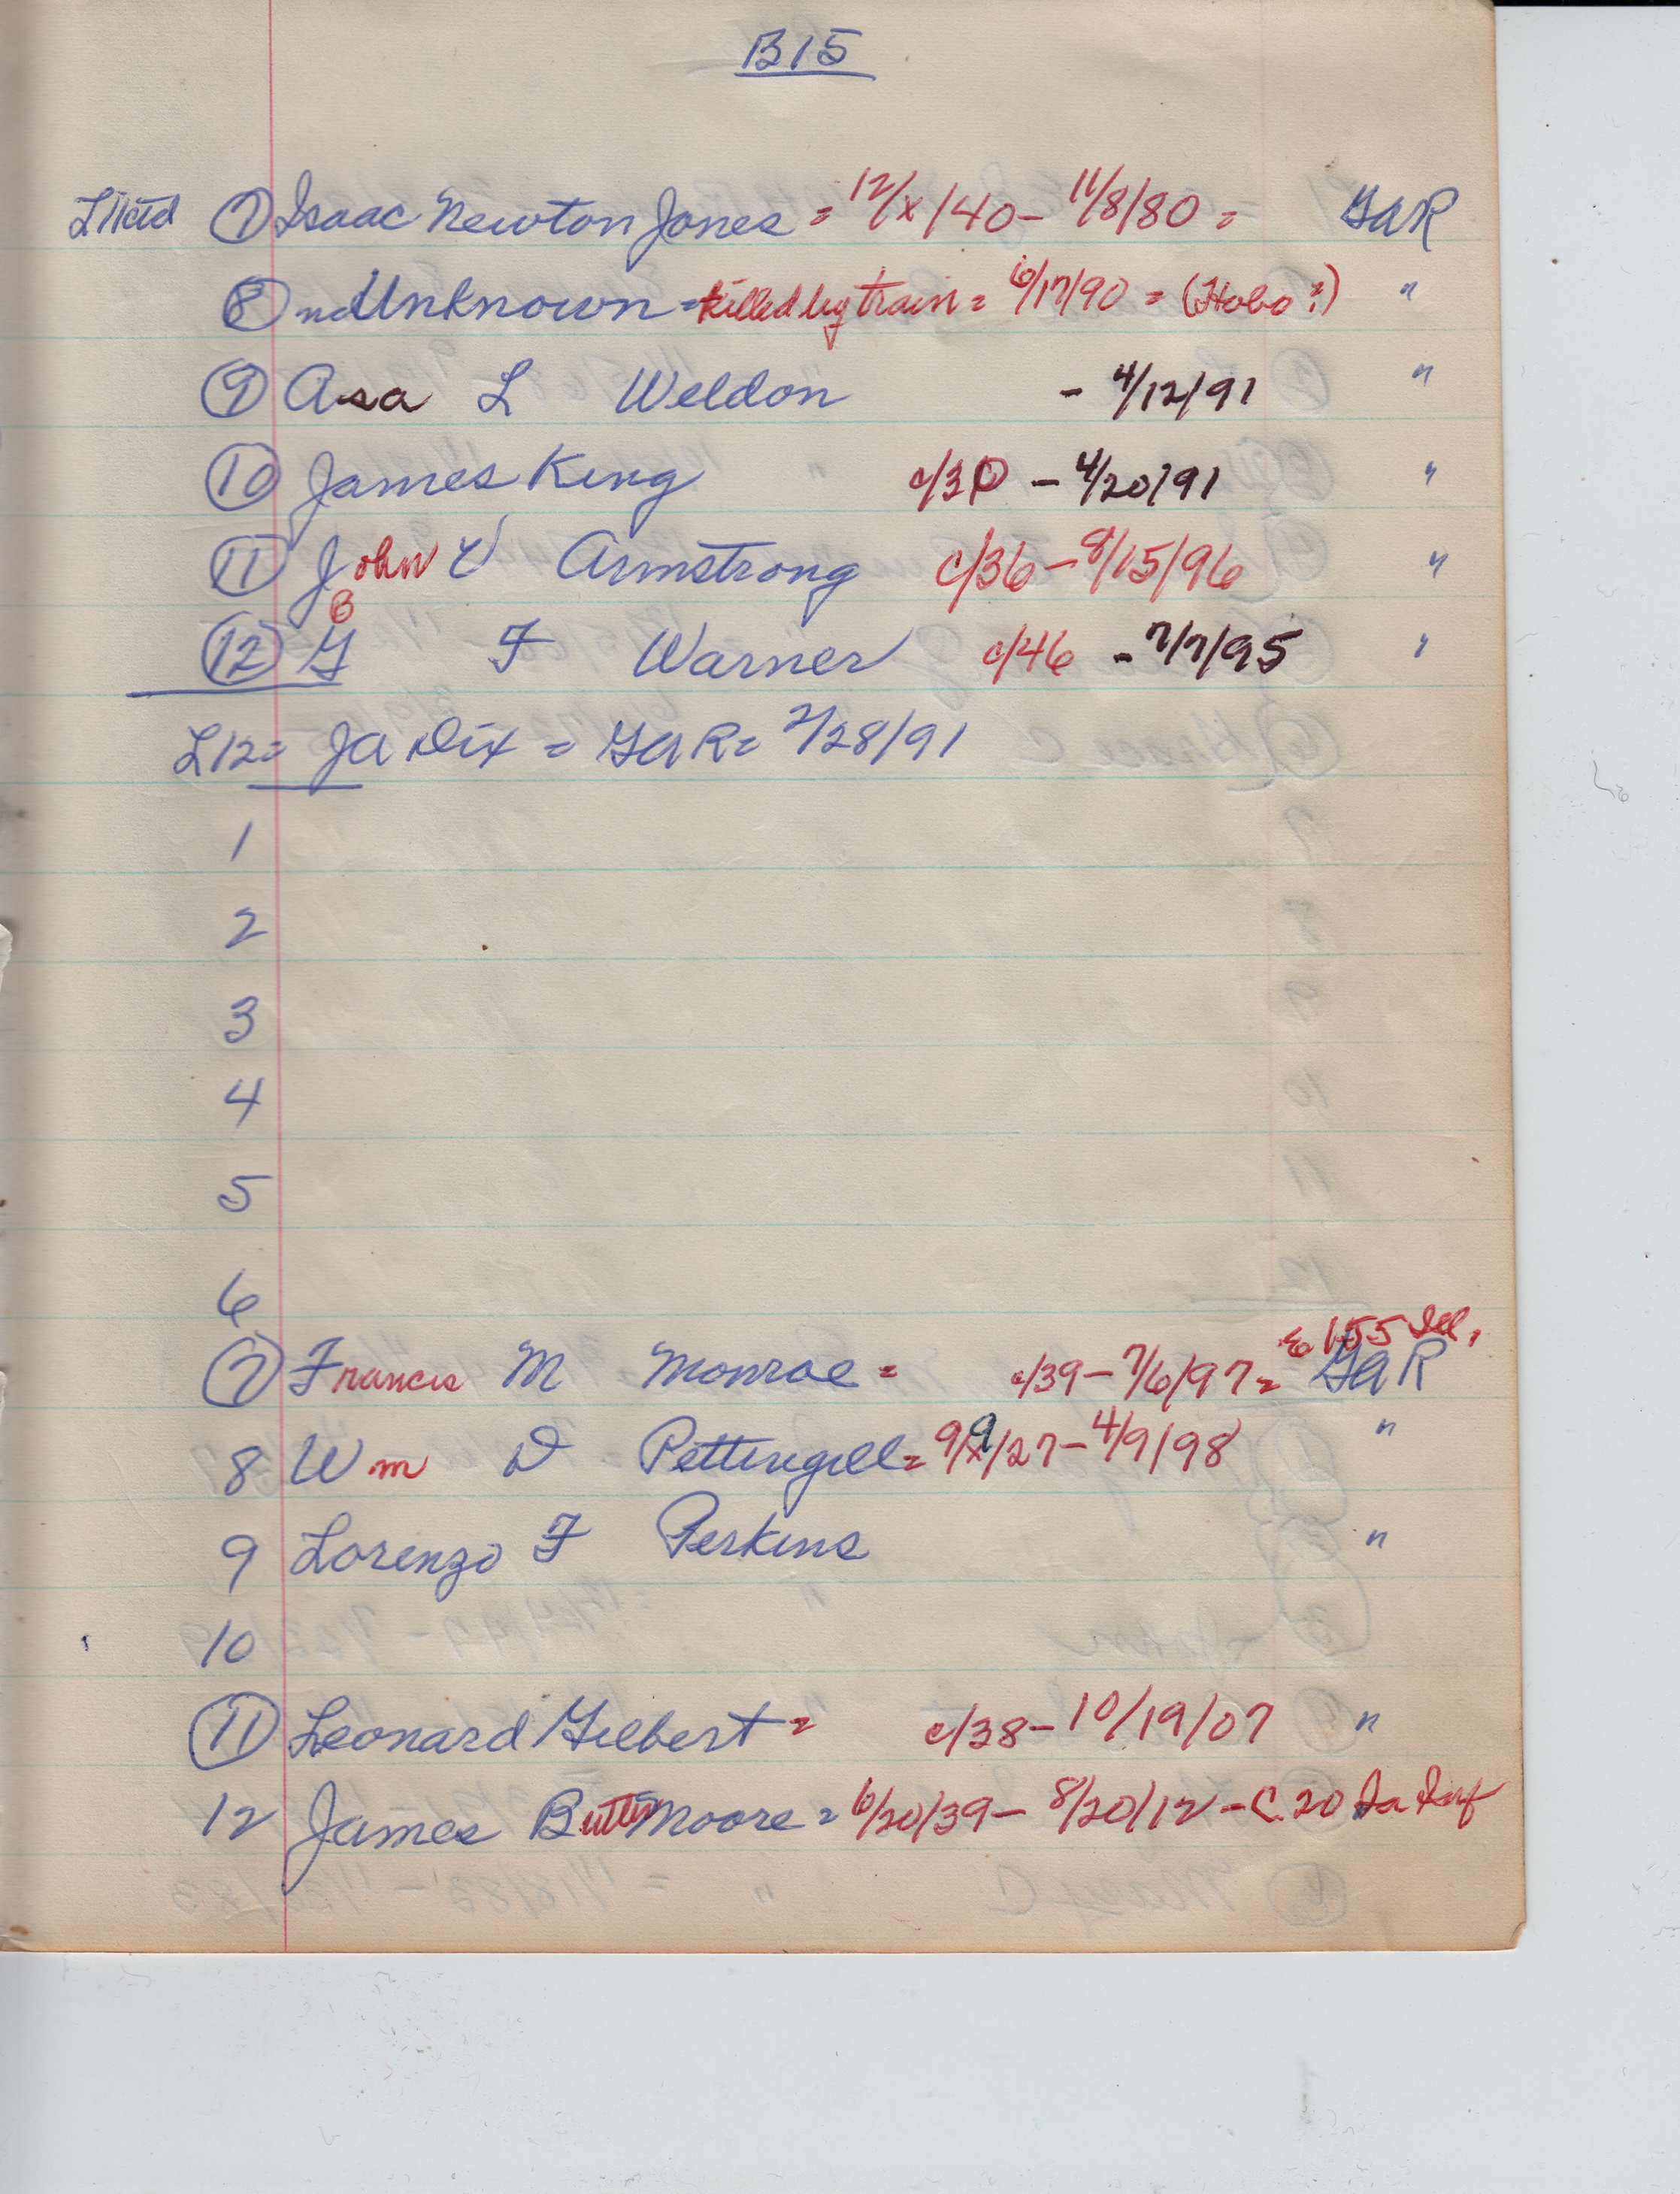 B15
⑦ Isaac Newton Jones = 12/x/40 - 11/8/80 = GaR
⑧ nd Unknown = killed by train = 6/17/90 = (Hobo?) "
⑨ Asa L Weldon - 4/12/91 "
⑩ James King c/30 - 4/20/91 "
⑪ John V Armstrong c/36 - 8/15/96 "
B
⑫ G F Warner c/46 - 7/7/95 "
L12 = Ja Dix = GaR = 2/28/91
1
2
3
4
5
6
E 155 Ill.
⑦ Francis M Monroe = c/39 - 7/6/97 = GaR
8 Wm D Pettingill = 9/9/27 - 4/9/98 "
9 Lorenzo F Perkins "
10
⑪ Leonard Gilbert = c/38 - 10/19/07 "
12 James Butler Moore = 6/20/39 - 8/20/12 - C. 20 Ia Inf